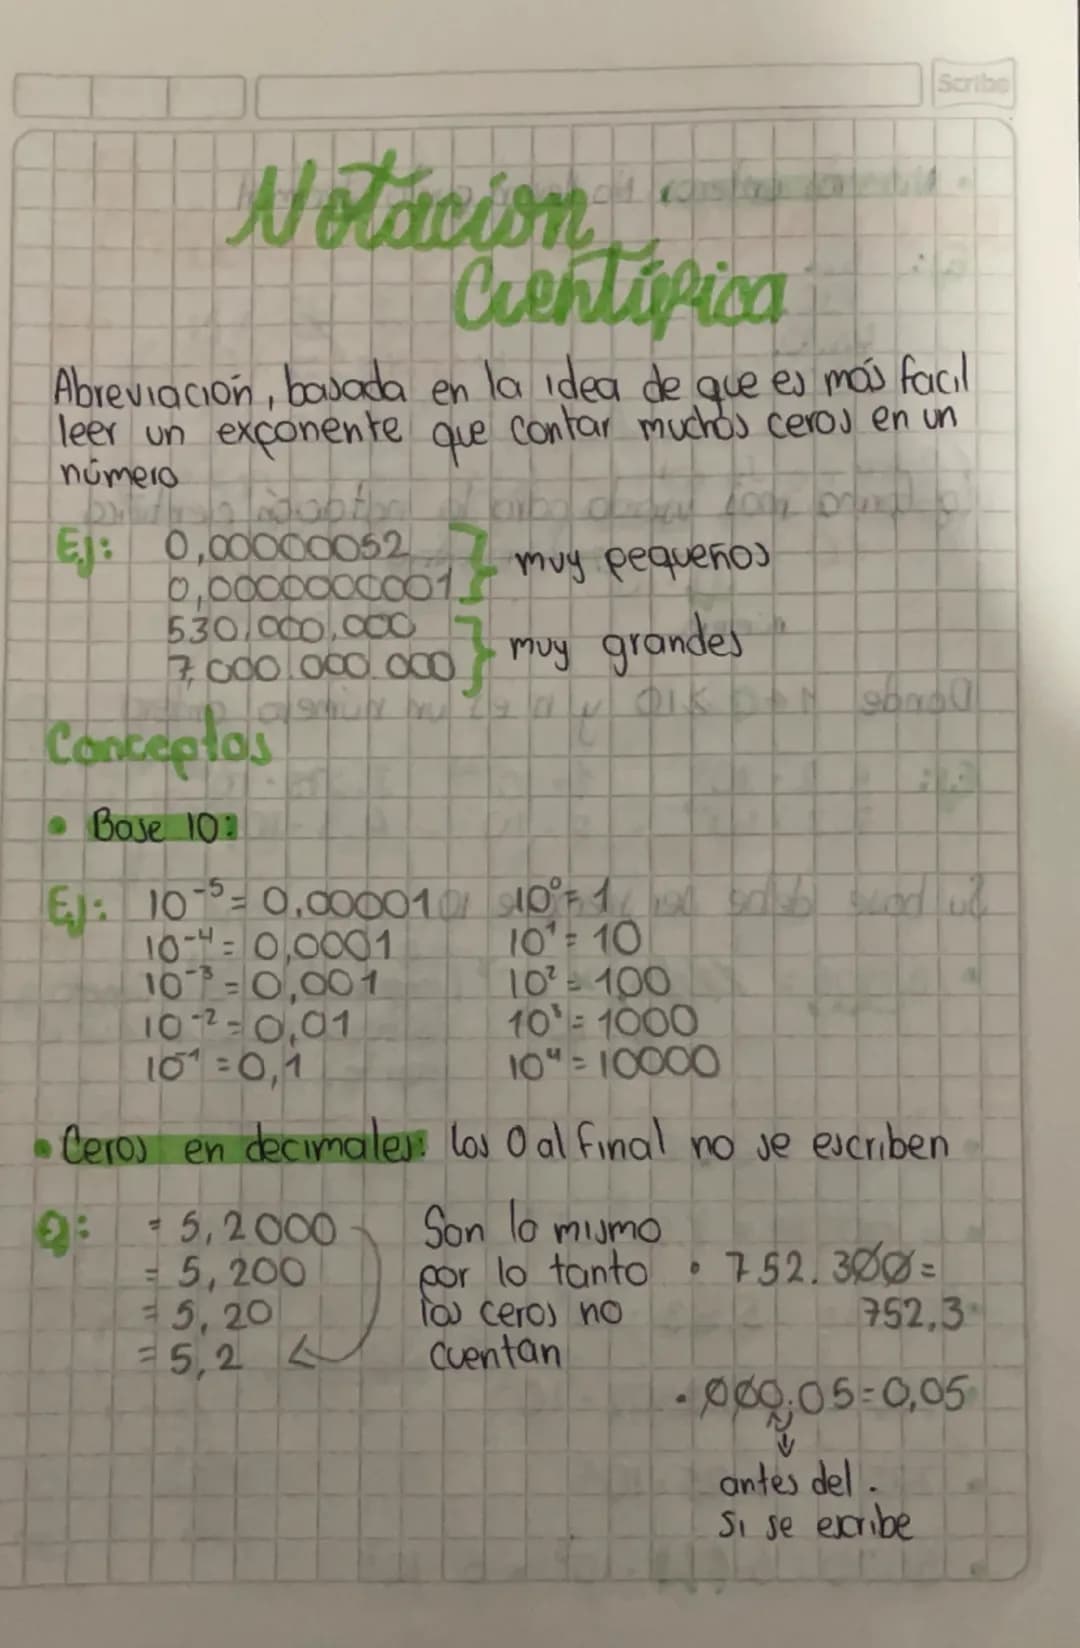 Scribe
Notación
Científica
Abreviación, basada en la idea de que es más facil
leer un exponente que contar muchos ceros en un
número
Ej: 0,00000052
0,0000000001
muy pequeños
530,000,000
7,000.000.000
muy grandes
Conceptos
• Base 10:
Ej: 10⁻⁵ = 0,00001 10⁰ = 1
10⁻⁴ = 0,0001 10¹ = 10
10⁻³ = 0,001 10² = 100
10⁻² = 0,01 10³ = 1000
10⁻¹ = 0,1 10⁴ = 10000
• Ceros en decimales: los 0 al final no se escriben
Ej: = 5,2000
= 5,200
= 5,20
= 5,2
Son lo mismo
por lo tanto
los ceros no
cuentan
• 752.300 =
752,3
• 000.05 = 0,05
antes del .
si se escribe